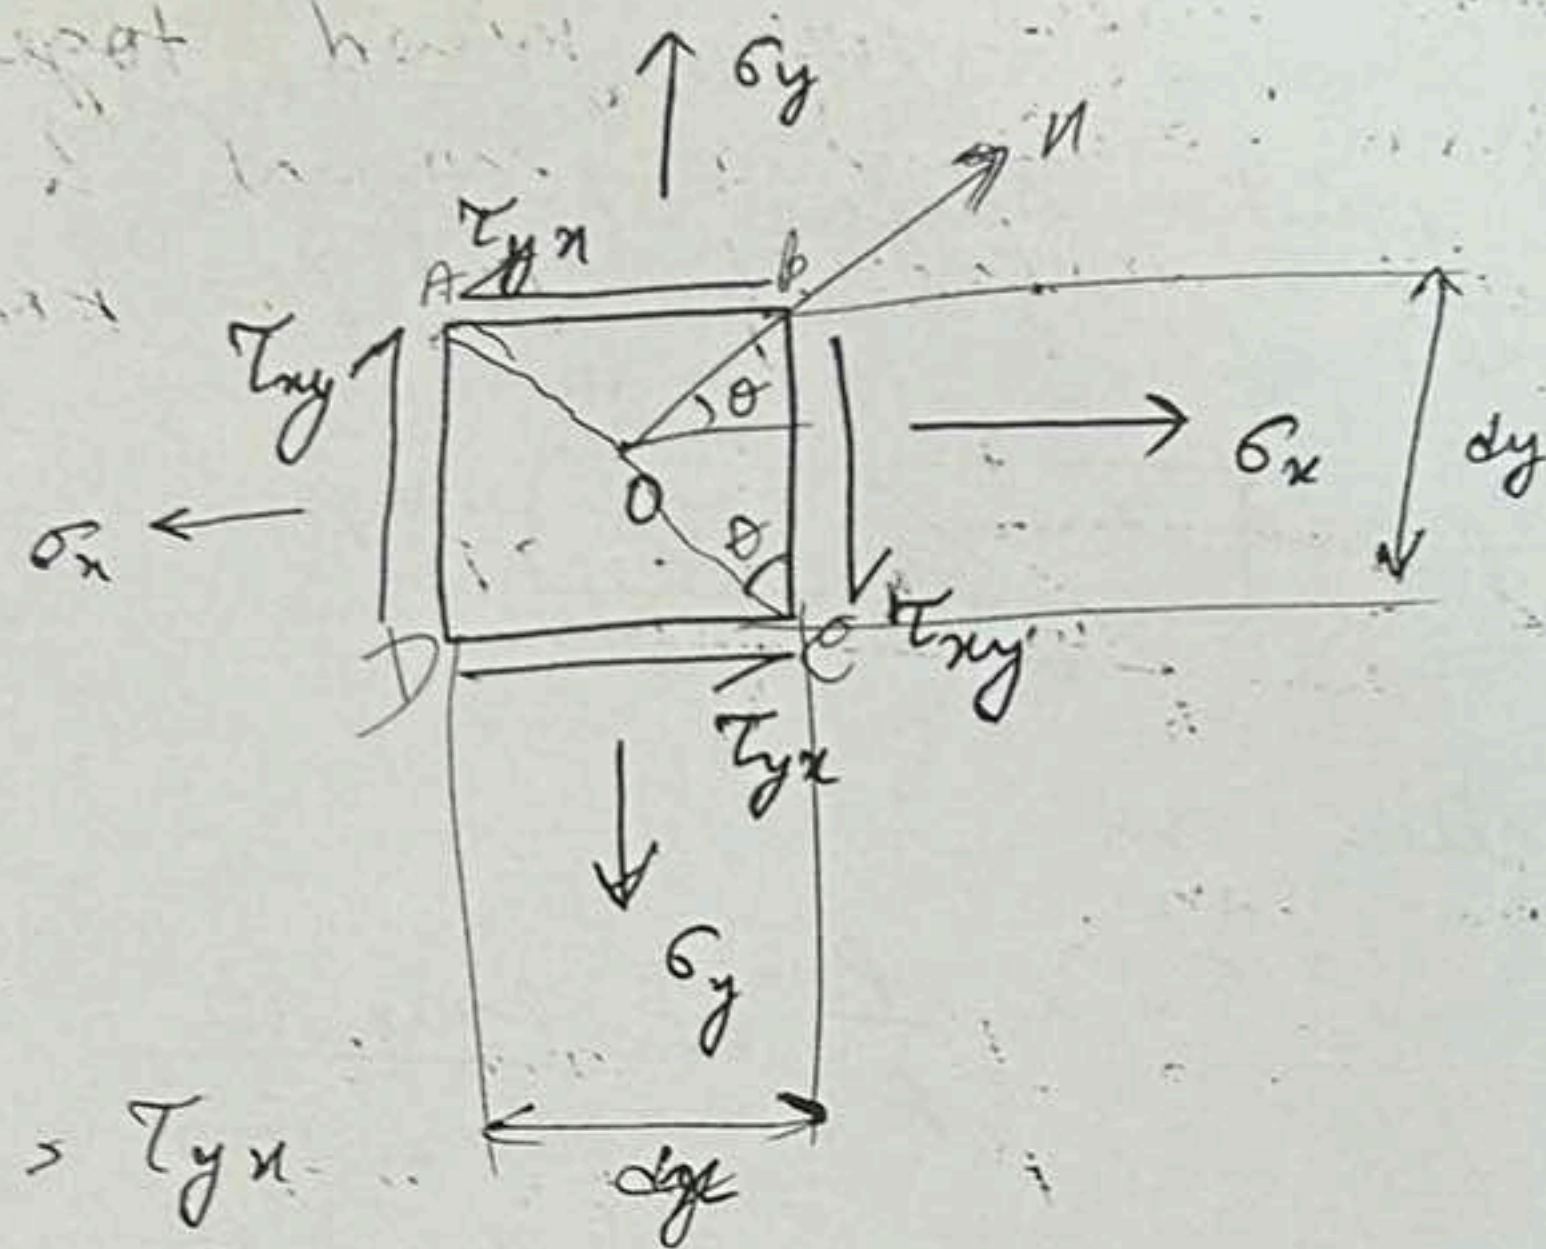 σy
n
τyx
A
B
τxy
θ
σx
dy
O
σx
θ
D
C
τxy
τyx
σy
τyx
dx